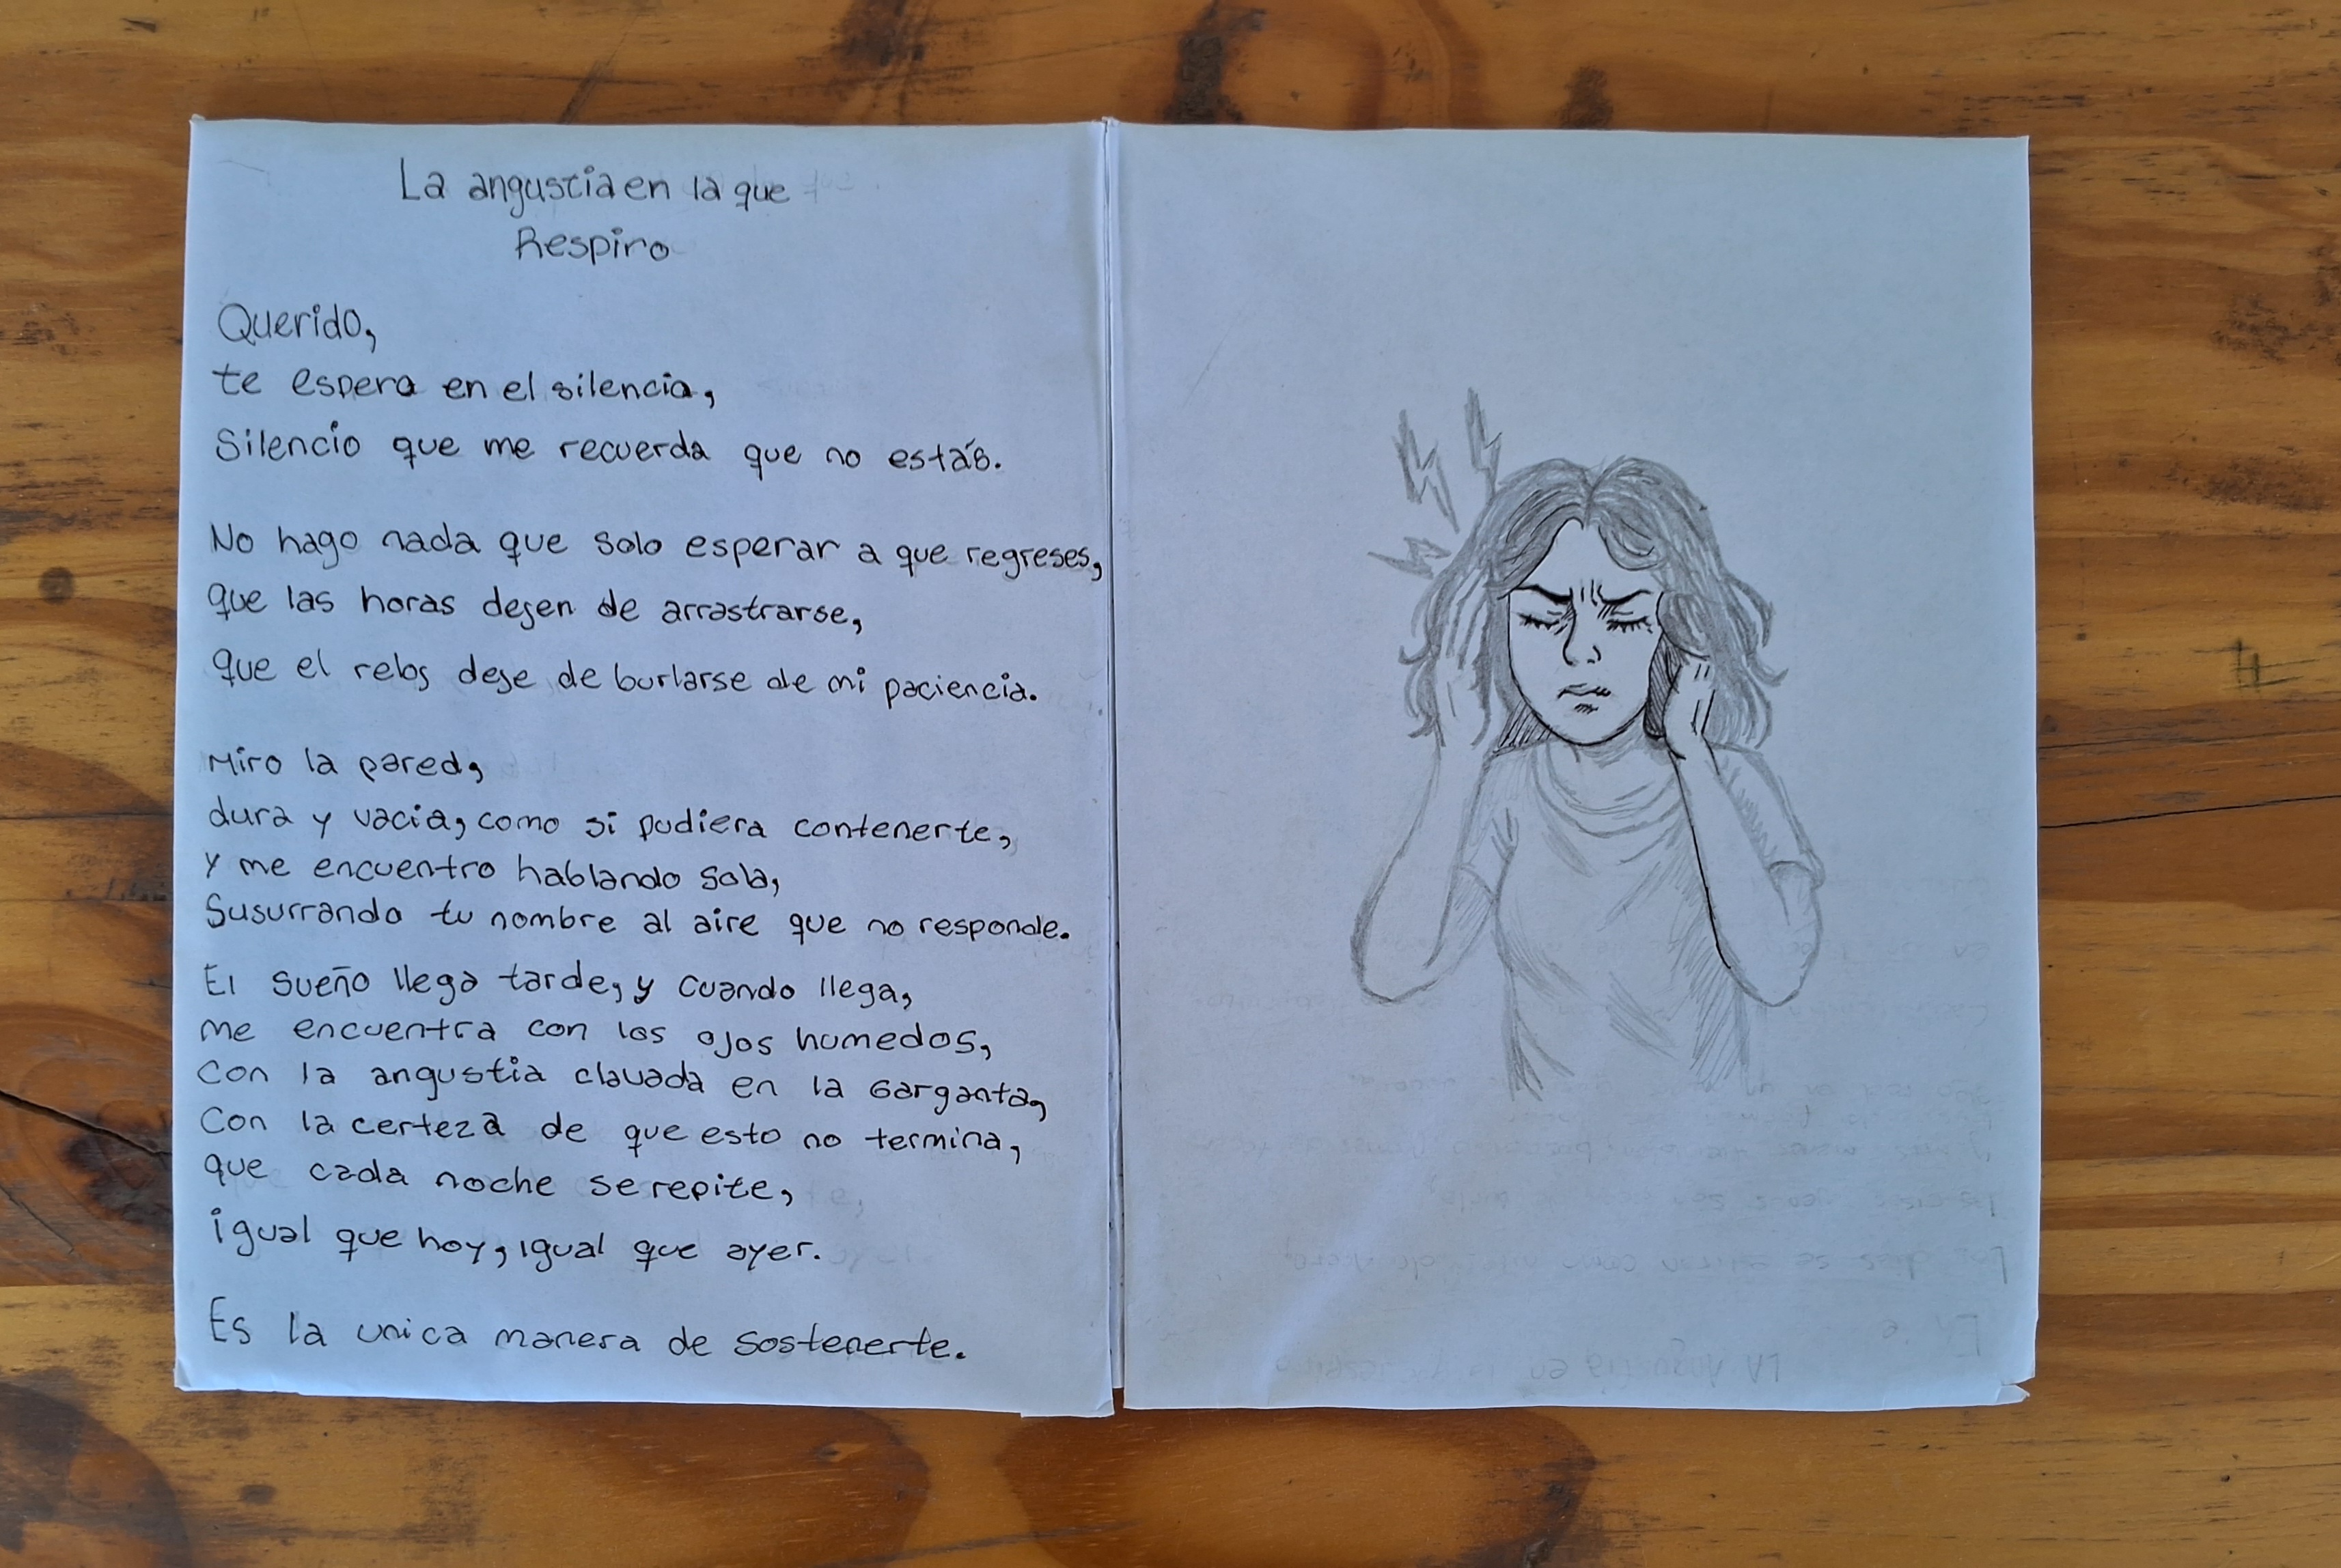 La angustia en la que
Respiro
Querido,
te espera en el silencia,
Silencio que me recuerda que no estás.
No hago nada que solo esperar a que regreses,
que las horas dejen de arrastrarse,
que el reloj deje de burlarse de mi paciencia.
Miro la pared,
dura y vacia, como si pudiera contenerte,
y me encuentro hablando sola,
Susurrando tu nombre al aire que no responde.
El sueño llega tarde, y cuando llega,
me encuentra con los ojos humedos,
Con la angustia clavada en la Garganta,
Con la certeza de que esto no termina,
que cada noche se repite,
igual que hoy, igual que ayer.
Es la unica manera de sostenerte.